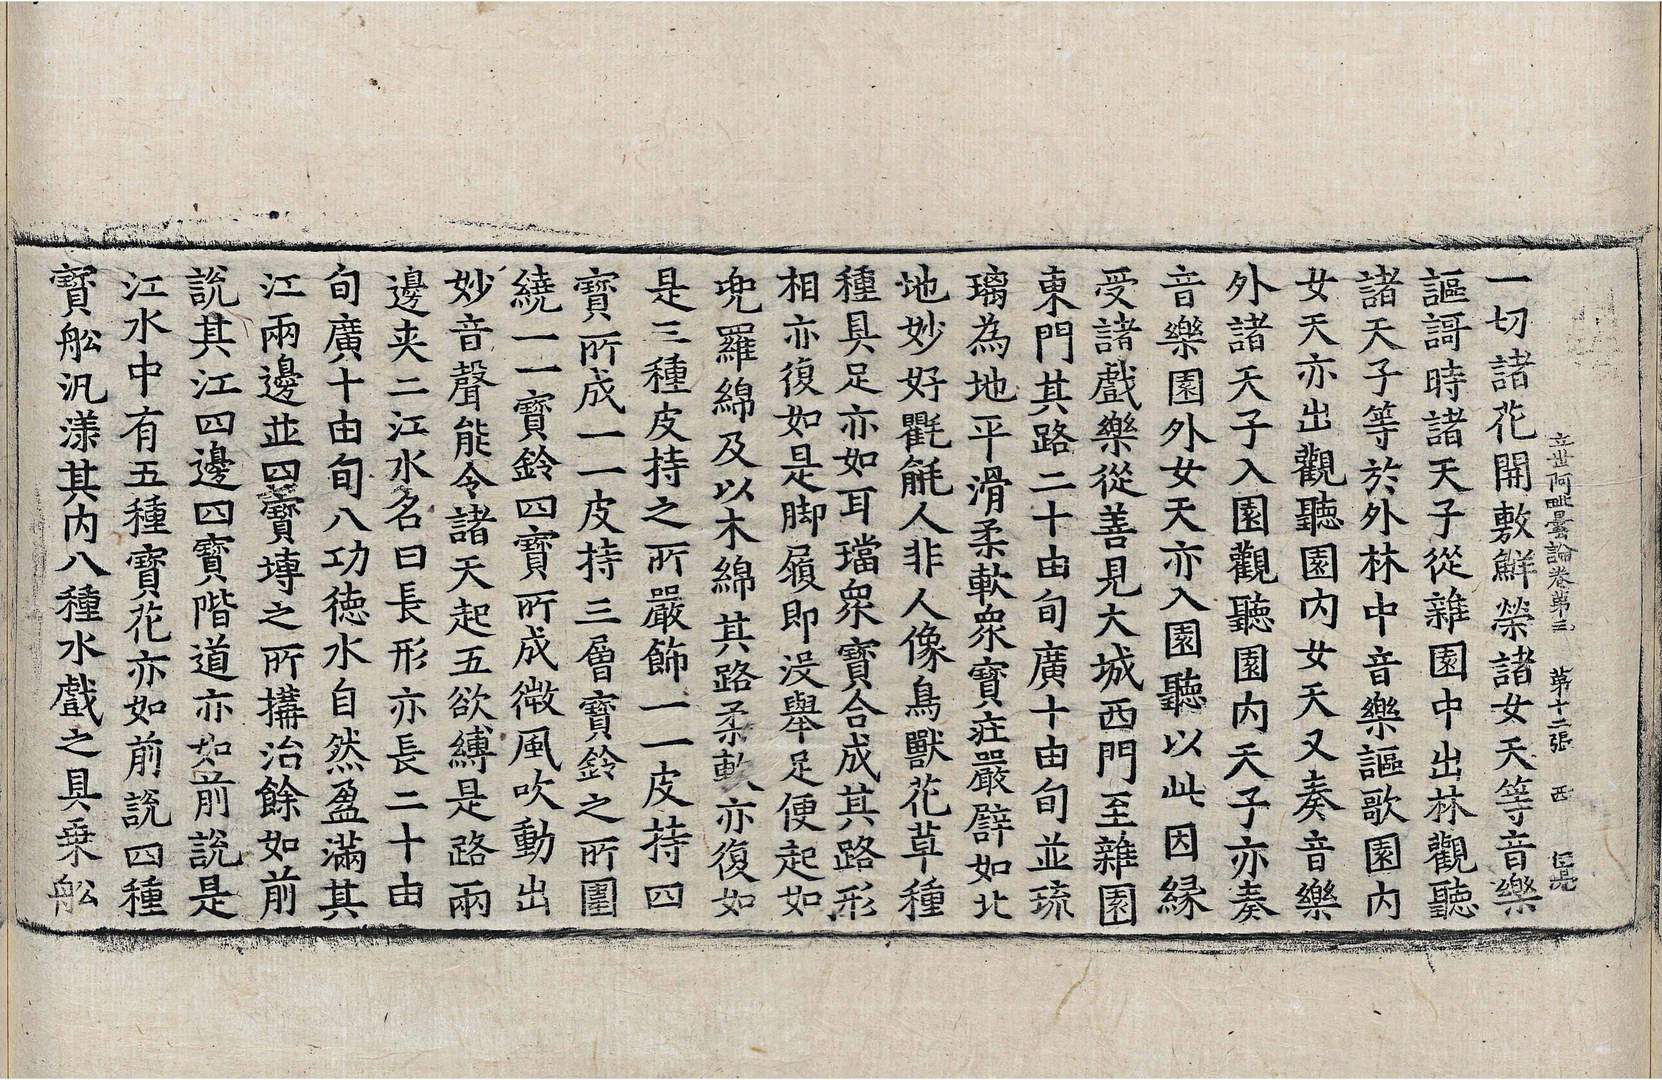 立世阿毗曇論卷第三 第十二張 西
一切諸花開敷鮮榮諸女天等音樂
謳謌時諸天子從雜園中出林觀聽
諸天子等於外林中音樂謳歌園內
女天亦出觀聽園內女天又奏音樂
外諸天子入園觀聽園內天子亦奏
音樂園外女天亦入園聽以此因緣
受諸戲樂從善見大城西門至雜園
東門其路二十由旬廣十由旬並琉
璃為地平滑柔軟衆寶莊嚴譬如北
地妙好氍毹人非人像鳥獸花草種
種具足亦如耳璫衆寶合成其路形
相亦復如是脚履即没舉足便起如
兜羅綿及以木綿其路柔軟亦復如
是三種皮持之所嚴飾一一皮持四
寶所成一一皮持三層寶鈴之所圍
繞一一寶鈴四寶所成微風吹動出
妙音聲能令諸天起五欲縛是路兩
邊夾二江水名曰長形亦長二十由
旬廣十由旬八功德水自然盈滿其
江兩邊並四寶塼之所搆治餘如前
說其江四邊四寶階道亦如前說是
江水中有五種寶花亦如前說四種
寶舩汎漾其內八種水戲之具乗舩